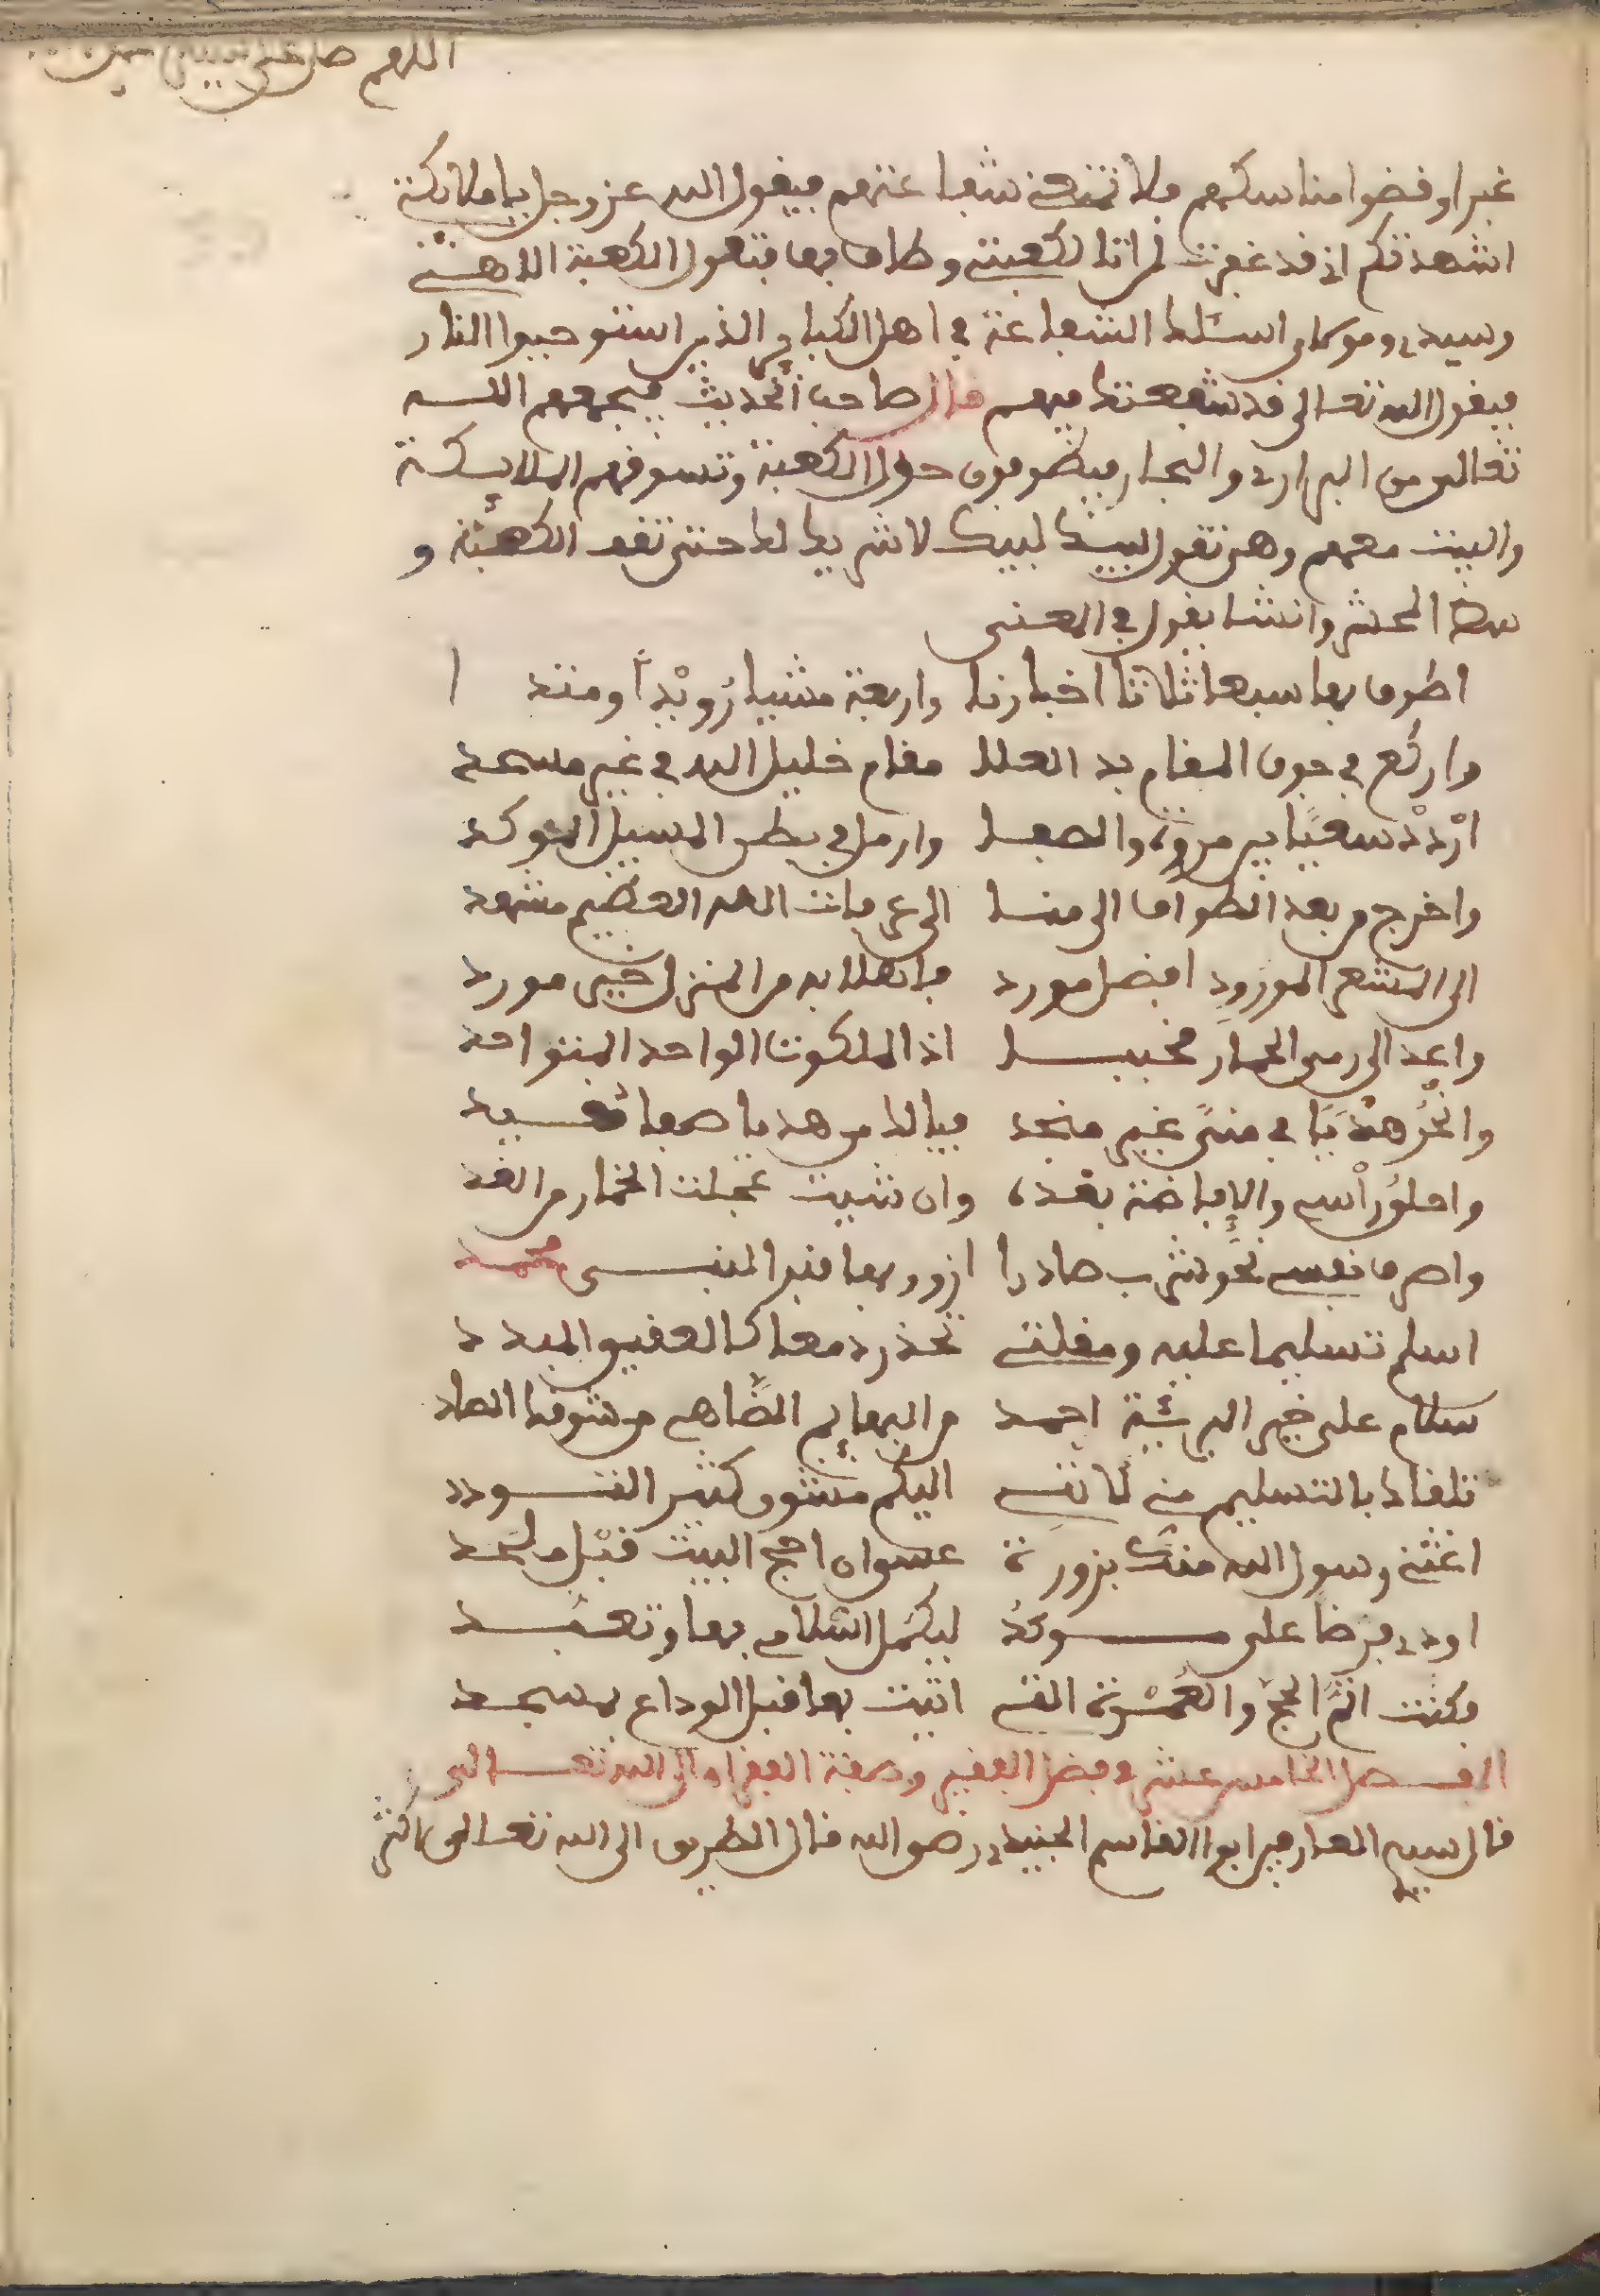 اللهم صل على
غبرا وقضوا مناسكهم فلا تمنعني شفاعتهم فيقول الله عز وجل يا ملائكة
اشهدتكم اني قد غفرت لمن اتا لكعبتي وطاف بها فتقول الكعبة الاهي
وسيدي ومولاي اسئلك الشفاعة في اهل الكباير الذين استوجبوا النار
فيقول الله تعالى قد شفعتك فيهم قال صاحب الحديث فيجمعهم اللـــه
تعالى من البراري والبحار فيطوفون حول الكعبة وتسوقهم الملايكة
والبيت معهم وهي تقول لبيك لبيك لا شريك لك حتى تقف الكعبة و
المحشر وانشا يقول في المعنى
اطوف بها سبعا ثلاثا اخبارنا واربعة مشيا رُوَيْداً ومتد ا
واركع في جوف المقام بد العلا مقام خليل الله في غير مسجد
ارْددْ سعْيًا بين مروة والصفا وارمل في بطن المسيل الموكد
واخرج من بعد الطواف الى منا الى عرفات الله العظيم مشهد
الى المشعر المورود افضل مورد فانعلا به من المنزل خير مورد
واعد الى رمي الجمار مخبــا اذا الملكوت الواحد المتواحد
وانحُر هَدْيًا في منىً غير منجد فيالك من هدي
واحلوُ رأسي والإفاضة بعْده وان شيت عجلت الجمار من الغد
واصرف نفسي نحو يثرب صادرا ازور بها قبر النبـــي محمد
اسلم تسليما عليه ومقلتي تحذر دمعا كالعقيق المبدد
سلام على خير البريئة احمد من البهايم الضّاهي من شوقه الصاد
تلقاك بالتسليم مني لانني اليكم مشوق كثير التـــودد
اغثني رسول الله منك بزورة عسى ان احج البيت قبل ملحد
اودي فرضا على مـــوكدُ ليكمُل اسلامي بها وتعبُـــد
فكنت اتمَّ الحجّ والعُمْرة التي اتيت بها قبل الوداع بمسجـــد
الفـــصل الخامس عشر في فضل الفقير وصفة الفقراء الى الله تعـــالى
قال سيد العارفين ابوا القاسم الجنيدي رضى الله قال الطريق الى الله تعالى اكثر